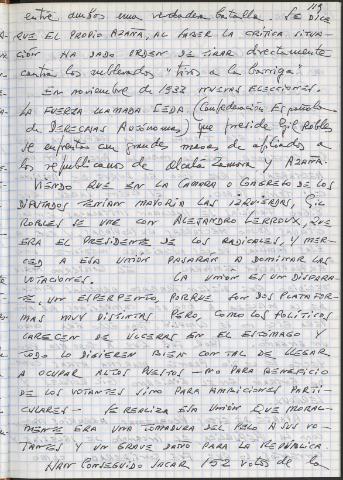 119
entre ambos una verdadera batalla. Se dice
que el propio Azaña, al saber la crítica situa-
ción ha dado orden de tirar directamente
contra los sublevados "tiros a la barriga"
En noviembre de 1933 nuevas elecciones.
La fuerza llamada CEDA (Confederación Española
de Derechas Autónomas) que preside Gil Robles
se enfrentan con grandes masas de afiliados a
los republicanos de Alcalá Zamora y Azaña.
Viendo que en la Cámara o Congreso de los
Diputados tenían mayoría las izquierdas, Gil
Robles se une con Alejandro Lerroux, que
era el Presidente de los Radicales, y mer-
ced a esa unión pasarán a dominar las
votaciones. La unión es un dispara-
te, un esperpento, porque son dos platafor-
mas muy distintas pero, como los políticos
carecen de úlceras en el estómago y
todo lo digieren bien con tal de llegar
a ocupar altos puestos - no para beneficio
de los votantes sino para ambiciones parti-
culares - se realiza esa unión que moral-
mente era una tomadura del pelo a sus vo-
tantes y un grave daño para la República.
Han conseguido sacar 152 votos de la